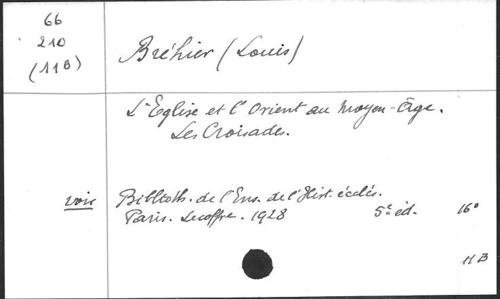 66
210
(11B)
Bréhier (Louis)
L'Eglise et l'Orient au Moyen-Âge.
Les Croisades.
voir Biblioth. de l'Ens. de l'Hist. ecclés.
Paris. Lecoffre. 1928 5e éd. 16°
11B